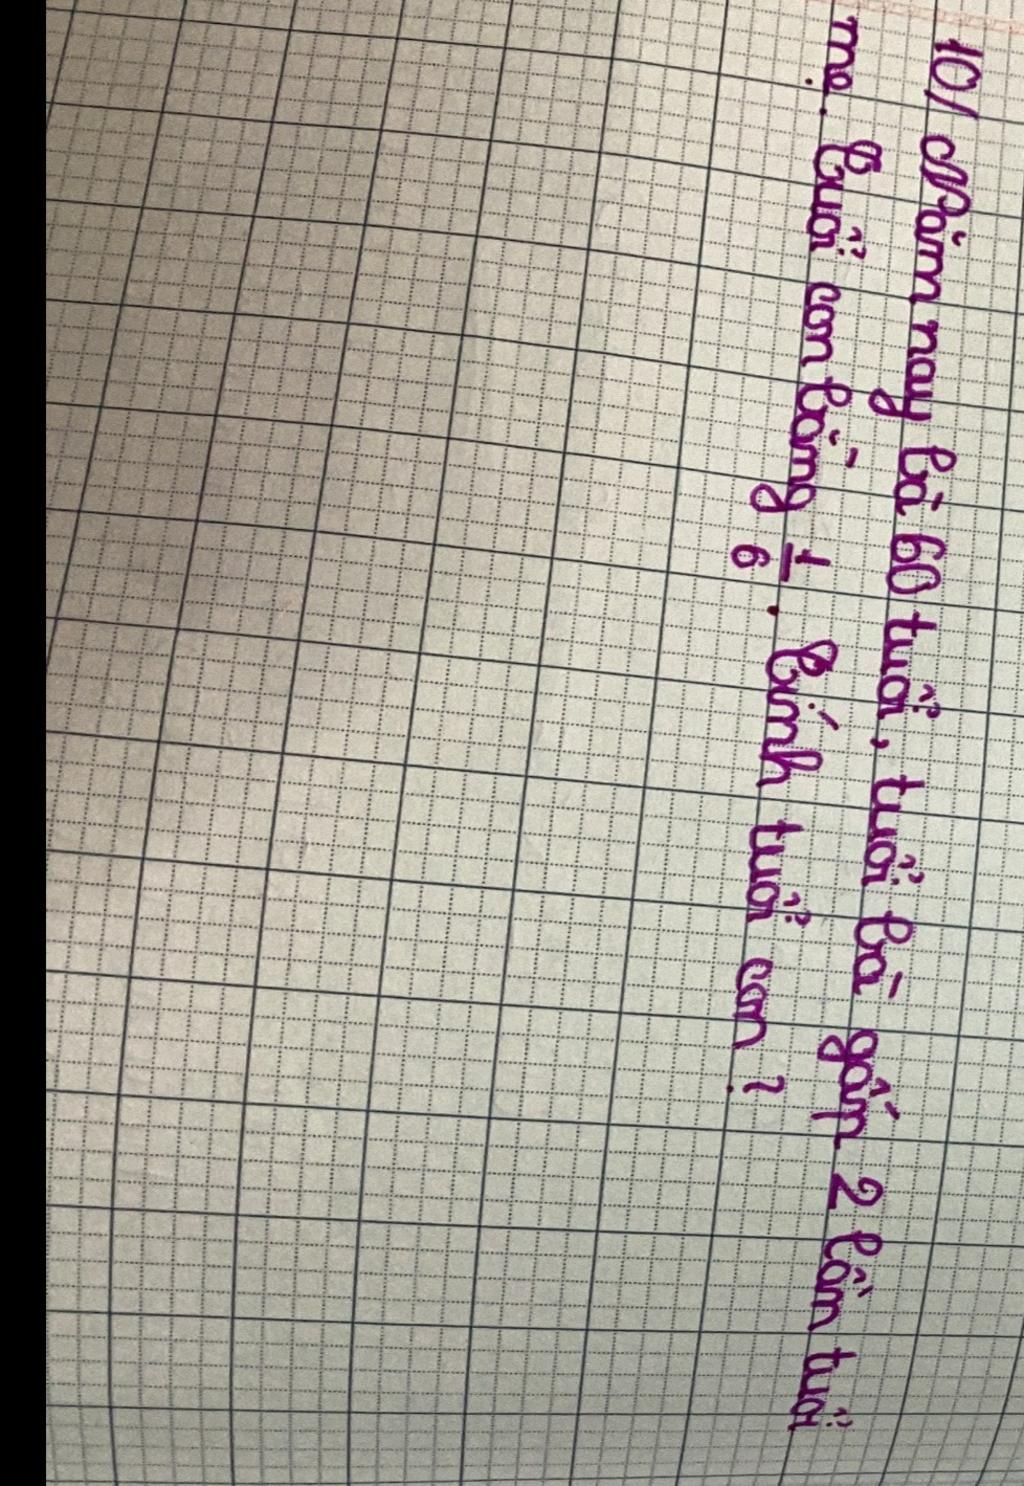 10/ Năm nay bà 60 tuổi, tuổi bà gấp 2 lần tuổi
mẹ. Tuổi con bằng 1/6. Tính tuổi con?